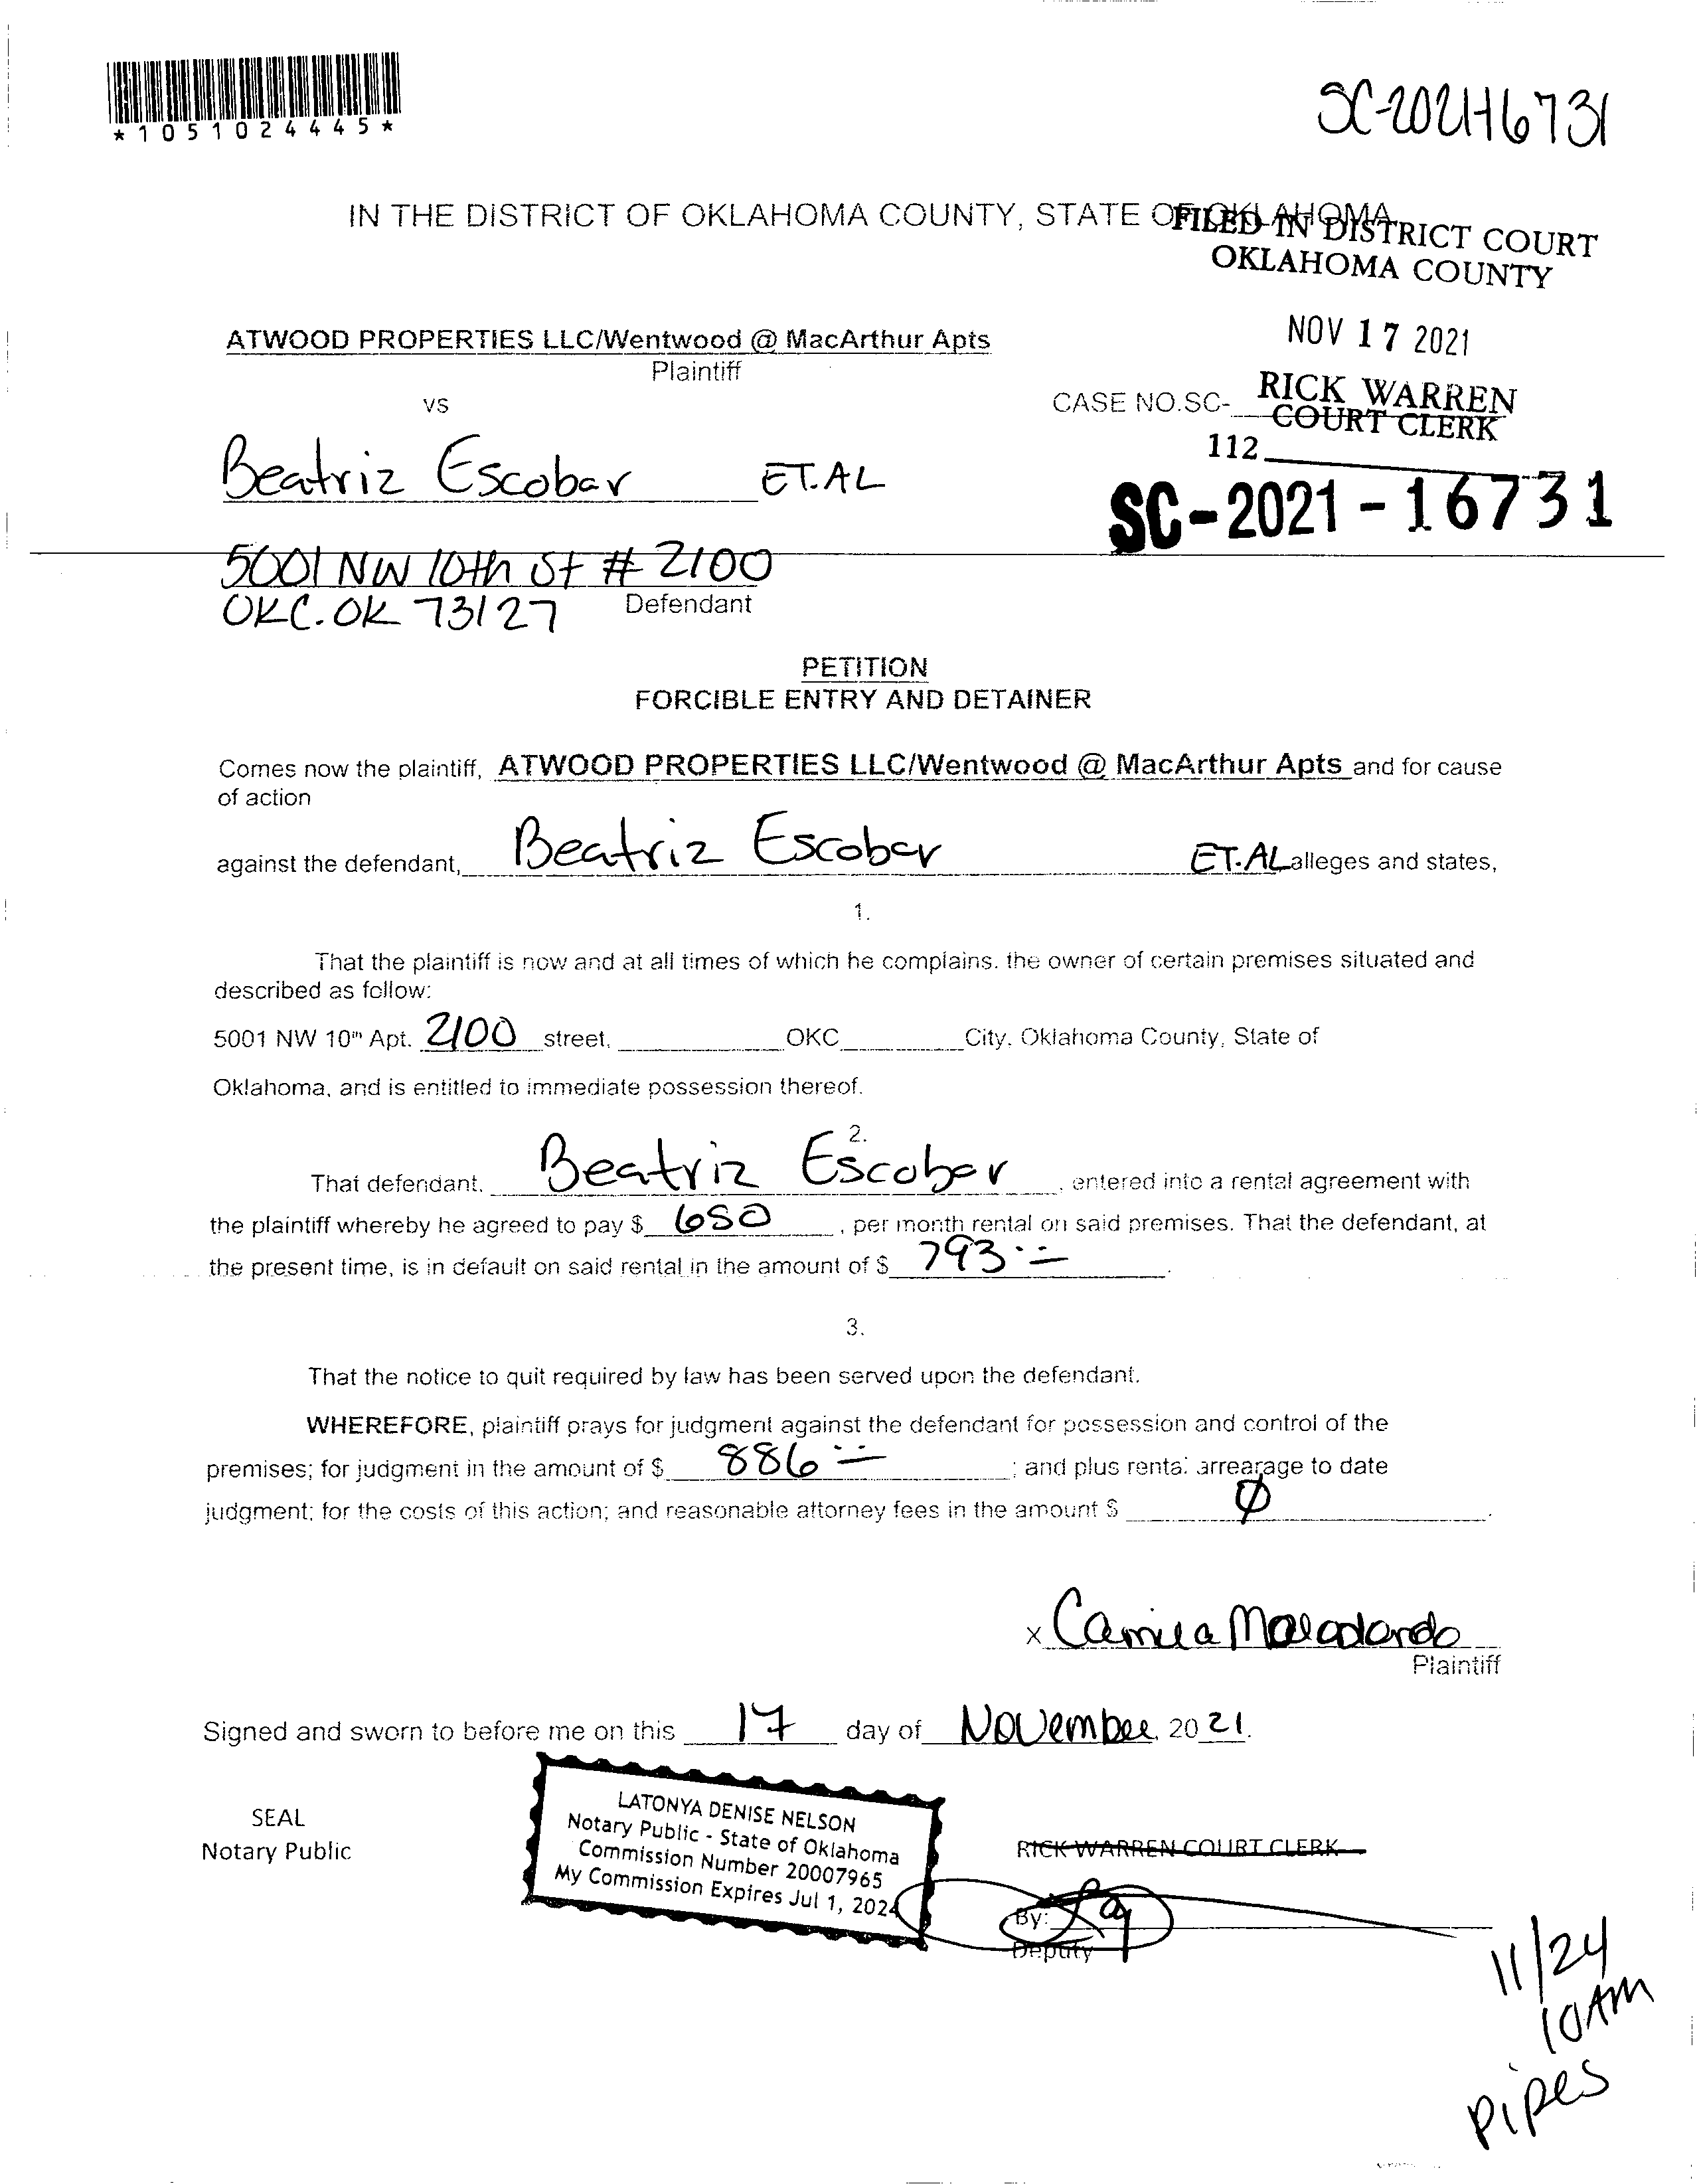 *1051024445*
SC-2021-16731
IN THE DISTRICT OF OKLAHOMA COUNTY, STATE OF OKLAHOMA
FILED IN DISTRICT COURT
OKLAHOMA COUNTY
NOV 17 2021
RICK WARREN
COURT CLERK
112
ATWOOD PROPERTIES LLC/Wentwood @ MacArthur Apts
Plaintiff
vs
CASE NO.SC-
SC-2021-16731
Beatriz Escobar ET.AL
5001 NW 10th St # 2100
OKC. OK 73127 Defendant
PETITION
FORCIBLE ENTRY AND DETAINER
Comes now the plaintiff, ATWOOD PROPERTIES LLC/Wentwood @ MacArthur Apts and for cause
of action
against the defendant, Beatriz Escobar ET.AL alleges and states,
1.
That the plaintiff is now and at all times of which he complains. the owner of certain premises situated and
described as follow:
5001 NW 10th Apt. 2100 street, OKC City, Oklahoma County, State of
Oklahoma, and is entitled to immediate possession thereof.
2.
That defendant, Beatriz Escobar, entered into a rental agreement with
the plaintiff whereby he agreed to pay $ 650, per month rental on said premises. That the defendant, at
the present time, is in default on said rental in the amount of $ 793.--.
3.
That the notice to quit required by law has been served upon the defendant.
WHEREFORE, plaintiff prays for judgment against the defendant for possession and control of the
premises; for judgment in the amount of $ 886 --; and plus rental arrearage to date
judgment; for the costs of this action; and reasonable attorney fees in the amount $ Ø.
x
Plaintiff
Signed and sworn to before me on this 17 day of November, 2021.
SEAL
Notary Public
LATONYA DENISE NELSON
Notary Public - State of Oklahoma
Commission Number 20007965
My Commission Expires Jul 1, 2024
RICK WARREN COURT CLERK
By:
Deputy
11/24
10AM
Pipes